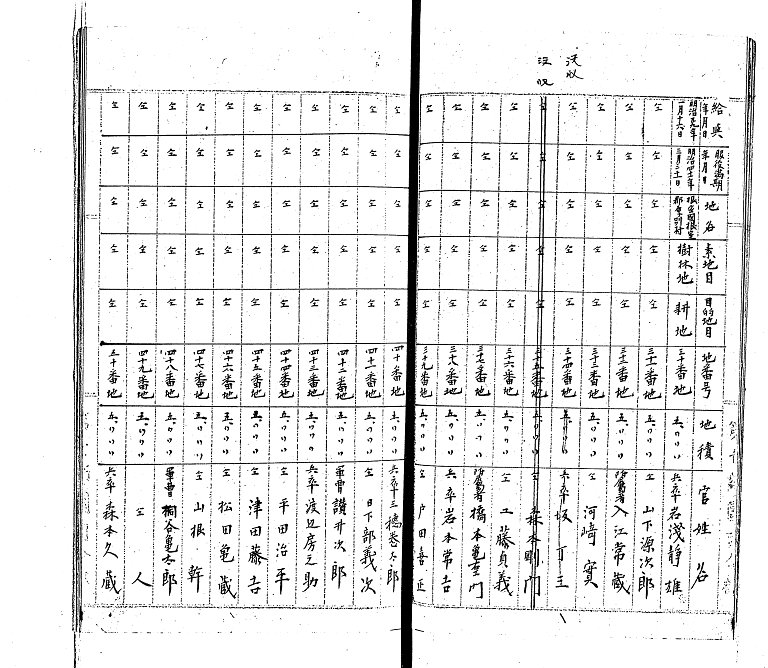 没収
没収
給與年月日 服役満期年月日 地名 素地目 目的地目 地番号 地積 官姓名
明治 年 月十六日 明治四十二年三月三十一日 根室國根室郡 村 樹林地 耕地 三十番地 五、〇〇〇 兵卒 岩淺静雄
仝 仝 仝 仝 仝 三十一番地 五、〇〇〇 仝 山下源次郎
仝 仝 仝 仝 仝 三十二番地 五、〇〇〇 入江常蔵
仝 仝 仝 仝 仝 三十三番地 五、〇〇〇 仝 河﨑實
仝 仝 仝 仝 仝 三十四番地 五、〇〇〇 兵卒 坂
仝 仝 仝 仝 仝 三十五番地 五、〇〇〇 仝 森本剛
仝 仝 仝 仝 仝 三十六番地 五、〇〇〇 仝 工藤貞義
仝 仝 仝 仝 仝 三十七番地 五、〇〇〇 橋本亀
仝 仝 仝 仝 仝 三十八番地 五、〇〇〇 兵卒 岩本常吉
仝 仝 仝 仝 仝 三十九番地 五、〇〇〇 仝 戸田喜
仝 仝 仝 仝 仝 四十番地 五、〇〇〇 兵卒 三穂巻太郎
仝 仝 仝 仝 仝 四十一番地 五、〇〇〇 仝 日下部義次
仝 仝 仝 仝 仝 四十二番地 五、〇〇〇 軍曹 讃井次郎
仝 仝 仝 仝 仝 四十三番地 五、〇〇〇 兵卒 渡辺房之助
仝 仝 仝 仝 仝 四十四番地 五、〇〇〇 仝 平田治平
仝 仝 仝 仝 仝 四十五番地 五、〇〇〇 仝 津田藤吉
仝 仝 仝 仝 仝 四十六番地 五、〇〇〇 仝 松田亀蔵
仝 仝 仝 仝 仝 四十七番地 五、〇〇〇 仝 山根幹
仝 仝 仝 仝 仝 四十八番地 五、〇〇〇 軍曹 桐谷亀太郎
仝 仝 仝 仝 仝 四十九番地 五、〇〇〇 仝 人
仝 仝 仝 仝 仝 五十番地 五、〇〇〇 兵卒 森本久蔵